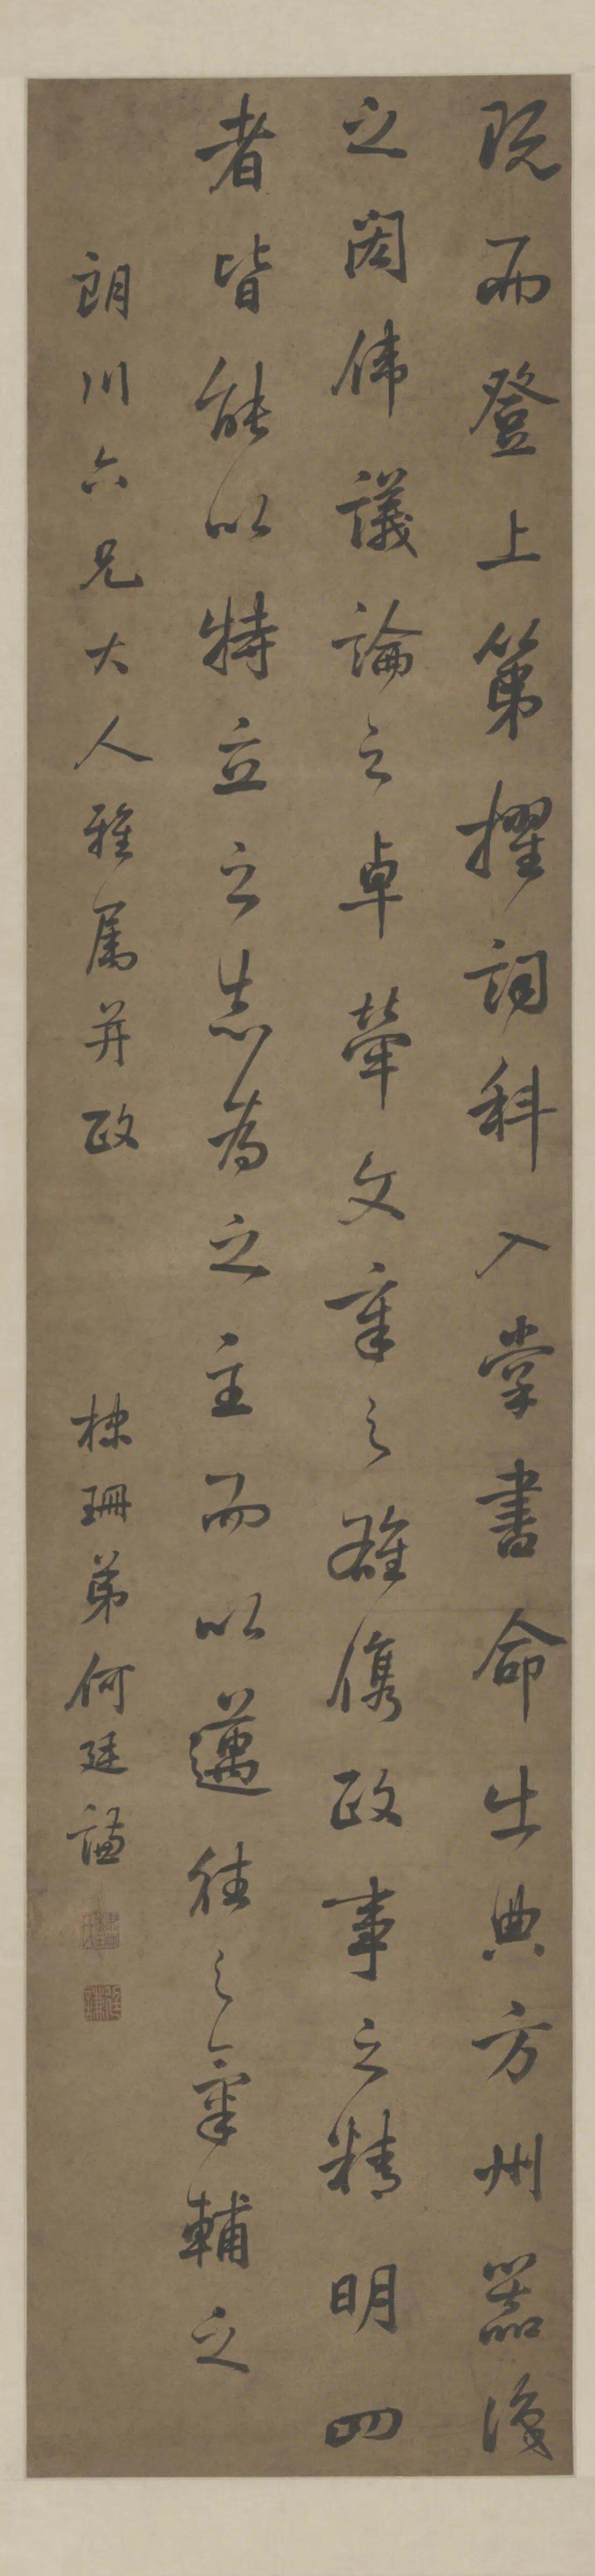 既而登上第擢詞科入掌書命出典方州器識
之閎偉議論之卓犖文章之雄儁政事之精明四
者皆能以特立之志為之主而以邁往之氣輔之
朗川六兄大人雅屬并政
棣珊弟何廷謙